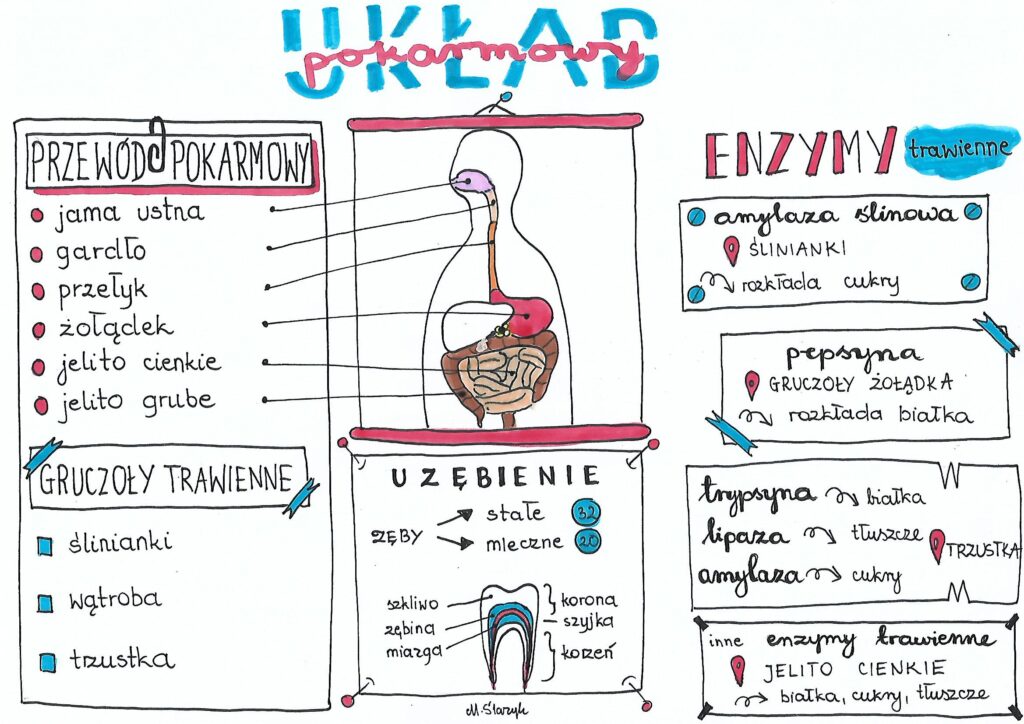 UKŁAD
pokarmowy
PRZEWÓD POKARMOWY
jama ustna
gardło
przełyk
żołądek
jelito cienkie
jelito grube
GRUCZOŁY TRAWIENNE
ślinianki
wątroba
trzustka
UZĘBIENIE
ZĘBY
stałe 32
mleczne 20
szkliwo
zębina
miazga
korona
szyjka
korzeń
M. Starzyk
ENZYMY trawienne
amylaza ślinowa
ŚLINIANKI
rozkłada cukry
pepsyna
GRUCZOŁY ŻOŁĄDKA
rozkłada białka
trypsyna białka
lipaza tłuszcze
TRZUSTKA
amylaza cukry
inne enzymy trawienne
JELITO CIENKIE
białka, cukry, tłuszcze